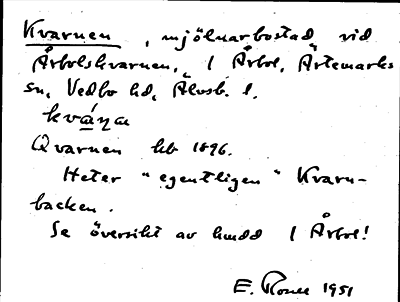 Kvarnen, mjölnarbostad vid
Årbolskvarnen, 1 Årbol, Ärtemarks
sn, Vedbo hd, Älvsb. l.
kváṇa
Qvarnen hb 1896.
Heter "egentligen" Kvarn-
backen.
Se översikt av hmdd 1 Årbol!
E. 1951